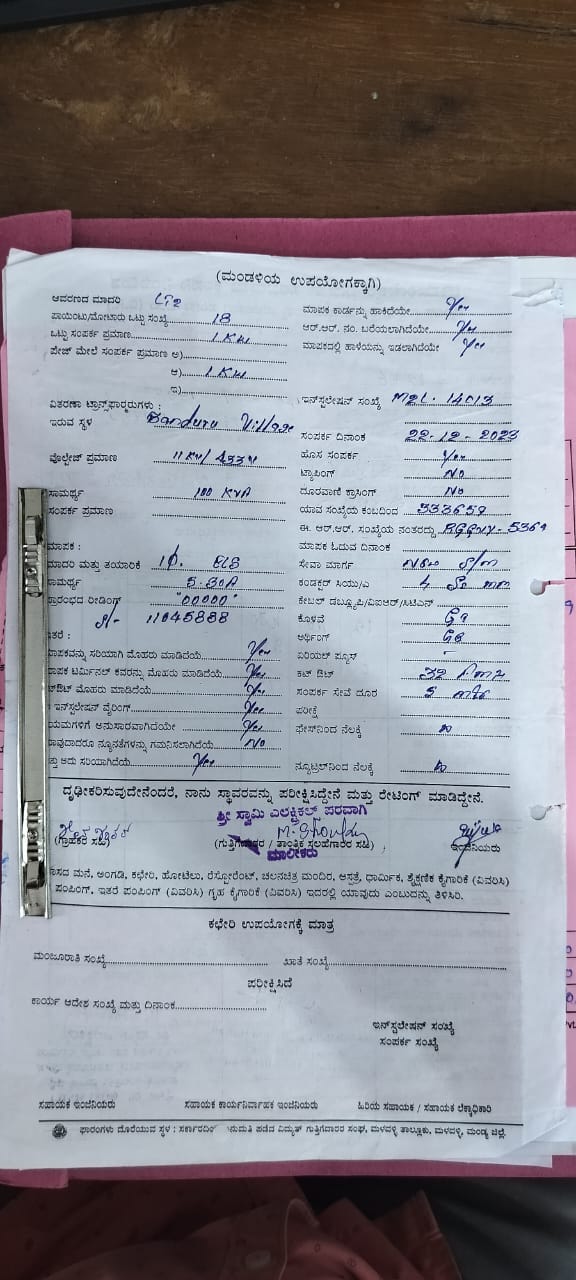 (ಮಂಡಳಿಯ ಉಪಯೋಗಕ್ಕಾಗಿ)
ಆವರಣದ ಮಾದರಿ LT2
ಮಾಪಕ ಕಾರ್ಡನ್ನು ಹಾಕಿದೆಯೇ Yes
ಪಾಯಿಂಟು/ಮೋಟಾರು ಒಟ್ಟು ಸಂಖ್ಯೆ 18
ಆರ್.ಆರ್. ನಂ. ಬರೆಯಲಾಗಿದೆಯೇ Yes
ಒಟ್ಟು ಸಂಪರ್ಕ ಪ್ರಮಾಣ 1 KW
ಮಾಪಕದಲ್ಲಿ ಹಾಳೆಯನ್ನು ಇಡಲಾಗಿದೆಯೇ Yes
ಪೇಜ್ ಮೇಲೆ ಸಂಪರ್ಕ ಪ್ರಮಾಣ ಅ)
ಆ) 1 KW
ಇ)
ಇನ್‌ಸ್ಟಲೇಷನ್ ಸಂಖ್ಯೆ M2L-14013
ವಿತರಣಾ ಟ್ರಾನ್ಸ್‌ಫಾರ್ಮರುಗಳು :
ಇರುವ ಸ್ಥಳ Banduru Village
ಸಂಪರ್ಕ ದಿನಾಂಕ 22-12-2023
ವೋಲ್ಟೇಜ್ ಪ್ರಮಾಣ 11 KV/433V
ಹೊಸ ಸಂಪರ್ಕ Yes
ಟ್ಯಾಪಿಂಗ್ No
ಸಾಮರ್ಥ್ಯ 100 KVA
ದೂರವಾಣಿ ಕ್ರಾಸಿಂಗ್ No
ಸಂಪರ್ಕ ಪ್ರಮಾಣ
ಯಾವ ಸಂಖ್ಯೆಯ ಕಂಬದಿಂದ 333659
ಈ. ಆರ್.ಆರ್. ಸಂಖ್ಯೆಯ ನಂತರದ್ದು RGGVY-5369
ಮಾಪಕ :
ಮಾಪಕ ಓದುವ ದಿನಾಂಕ
ಮಾದರಿ ಮತ್ತು ತಯಾರಿಕೆ 1ϕ.
ಸೇವಾ ಮಾರ್ಗ New S/m
ಸಾಮರ್ಥ್ಯ 5-30A
ಕಂಡಕ್ಟರ್ ಸಿಯು/ಎ 4 Sq mm
ಪ್ರಾರಂಭದ ರೀಡಿಂಗ್ "00000"
ಕೇಬಲ್ ಡಬ್ಲ್ಯೂಪಿ/ವಿಐಆರ್/ಸಿಟಿಎಸ್
S/- 11045888
ಕೊಳವೆ GI
ಇತರೆ :
ಅರ್ಥಿಂಗ್
ಮಾಪಕವನ್ನು ಸರಿಯಾಗಿ ಮೊಹರು ಮಾಡಿದೆಯೆ Yes
ಏರಿಯಲ್ ಪ್ಯೂಸ್ -
ಮಾಪಕ ಟರ್ಮಿನಲ್ ಕವರನ್ನು ಮೊಹರು ಮಾಡಿದೆಯೆ Yes
ಕಟ್ ಔಟ್ 32
ಕಟ್‌ಔಟ್ ಮೊಹರು ಮಾಡಿದೆಯೆ Yes
ಸಂಪರ್ಕ ಸೇವೆ ದೂರ 5 mtr
ಇನ್‌ಸ್ಟಲೇಷನ್ ವೈರಿಂಗ್ Yes
ಪರೀಕ್ಷೆ
ನಿಯಮಗಳಿಗೆ ಅನುಸಾರವಾಗಿದೆಯೇ Yes
ಫೇಸ್‌ನಿಂದ ನೆಲಕ್ಕೆ
ಯಾವುದಾದರೂ ನ್ಯೂನತೆಗಳನ್ನು ಗಮನಿಸಲಾಗಿದೆಯೆ No
ಮತ್ತು ಅದು ಸರಿಯಾಗಿದೆಯೆ Yes
ನ್ಯೂಟ್ರಲ್‌ನಿಂದ ನೆಲಕ್ಕೆ
ದೃಢೀಕರಿಸುವುದೇನೆಂದರೆ, ನಾನು ಸ್ಥಾವರವನ್ನು ಪರೀಕ್ಷಿಸಿದ್ದೇನೆ ಮತ್ತು ರೇಟಿಂಗ್ ಮಾಡಿದ್ದೇನೆ.
ಶ್ರೀ ಸ್ವಾಮಿ ಎಲೆಕ್ಟ್ರಿಕಲ್ಸ್ ಪರವಾಗಿ
(ಗ್ರಾಹಕರ ಸಹಿ) (ಗುತ್ತಿಗೆದಾರರ / ತಾಂತ್ರಿಕ ಸಲಹೆಗಾರರ ಸಹಿ) ಇಂಜಿನಿಯರು
ಮಾಲೀಕರು
ವಾಸದ ಮನೆ, ಅಂಗಡಿ, ಕಛೇರಿ, ಹೋಟೆಲು, ರೆಸ್ಟೋರೆಂಟ್, ಚಲನಚಿತ್ರ ಮಂದಿರ, ಆಸ್ಪತ್ರೆ, ಧಾರ್ಮಿಕ, ಶೈಕ್ಷಣಿಕ ಕೈಗಾರಿಕೆ (ವಿವರಿಸಿ)
ಪಂಪಿಂಗ್, ಇತರೆ ಪಂಪಿಂಗ್ (ವಿವರಿಸಿ) ಗೃಹ ಕೈಗಾರಿಕೆ (ವಿವರಿಸಿ) ಇದರಲ್ಲಿ ಯಾವುದು ಎಂಬುದನ್ನು ತಿಳಿಸಿರಿ.
ಕಛೇರಿ ಉಪಯೋಗಕ್ಕೆ ಮಾತ್ರ
ಮಂಜೂರಾತಿ ಸಂಖ್ಯೆ ಖಾತೆ ಸಂಖ್ಯೆ
ಪರೀಕ್ಷಿಸಿದೆ
ಕಾರ್ಯ ಆದೇಶ ಸಂಖ್ಯೆ ಮತ್ತು ದಿನಾಂಕ
ಇನ್‌ಸ್ಟಲೇಷನ್ ಸಂಖ್ಯೆ
ಸಂಪರ್ಕ ಸಂಖ್ಯೆ
ಸಹಾಯಕ ಇಂಜಿನಿಯರು ಸಹಾಯಕ ಕಾರ್ಯನಿರ್ವಾಹಕ ಇಂಜಿನಿಯರು ಹಿರಿಯ ಸಹಾಯಕ / ಸಹಾಯಕ ಲೆಕ್ಕಾಧಿಕಾರಿ
ಫಾರಂಗಳು ದೊರೆಯುವ ಸ್ಥಳ : ಸರ್ಕಾರದಿಂದ ಅನುಮತಿ ಪಡೆದ ವಿದ್ಯುತ್ ಗುತ್ತಿಗೆದಾರರ ಸಂಘ, ಮಳವಳ್ಳಿ ತಾಲ್ಲೂಕು, ಮಳವಳ್ಳಿ, ಮಂಡ್ಯ ಜಿಲ್ಲೆ.